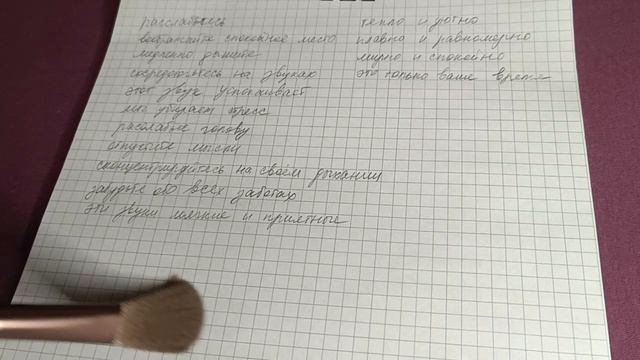 расслабьтесь
вообразите спокойное место
медленно дышите
сосредоточьтесь на звуках
этот звук успокаивает
мы убираем стресс
расслабьте голову
отпустите мысли
сконцентрируйтесь на своём дыхании
забудьте обо всех заботах
эти звуки мягкие и приятные
тепло и уютно
плавно и равномерно
мирно и спокойно
это только ваше время